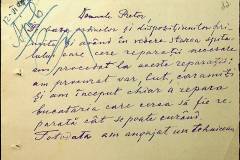 Domnule Pretor,
În baza ordinelor și dispozițiunilor pri-
mite și având în vedere starea spita-
lului care cere reparații necesare
am procedat la aceste reparații:
am procurat var, lut, cărămizi
și am început chiar a repara
bucătăria care cerea să fie re-
parată cât se poate curând.
Totodată am angajat un tehnician